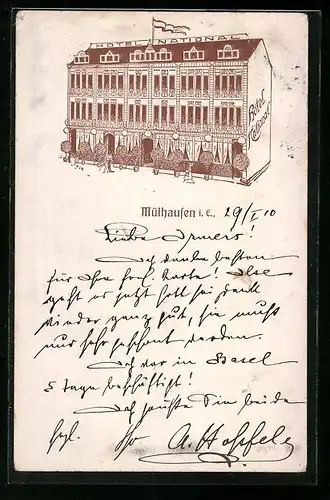 HOTEL NATIONAL
Hotel
National
Mülhausen i. E., 29/I 10
Liebe Irmers!
Ich danke bestens
für Ihre frdl. Karte! Ilse
geht es jetzt Gott sei Dank
wieder ganz gut, sie muß
nur sehr geschont werden.
Ich war in Basel
5 Tage beschäftigt!
Ich grüße Sie beide
hzl. Ihr A. Hoffele